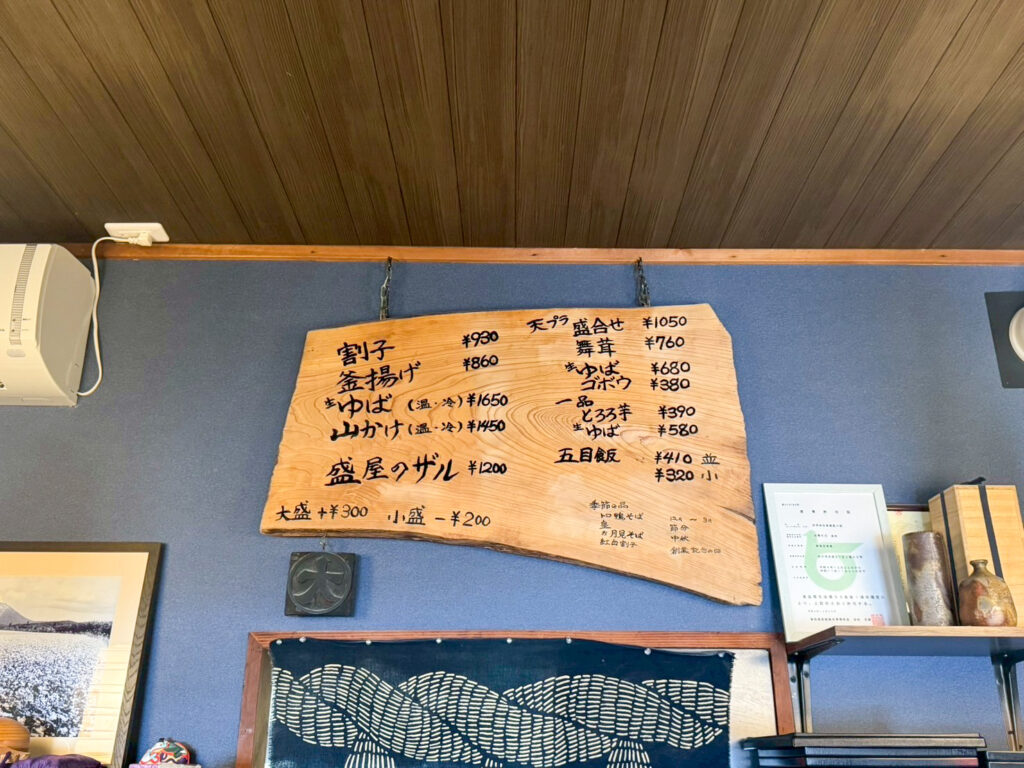 割子 ¥930
釜揚げ ¥860
生ゆば (温・冷) ¥1650
山かけ (温・冷) ¥1450
盛屋のザル ¥1200
大盛+¥300 小盛-¥200
天プラ 盛合せ ¥1050
舞茸 ¥760
生ゆば ¥680
ゴボウ ¥380
一品
とろろ芋 ¥390
生ゆば ¥580
五目飯 ¥410 並
¥320 小
季節の品
鴨そば 12月〜3月
節分
月見そば 中秋
紅白割子 創業記念の日
木